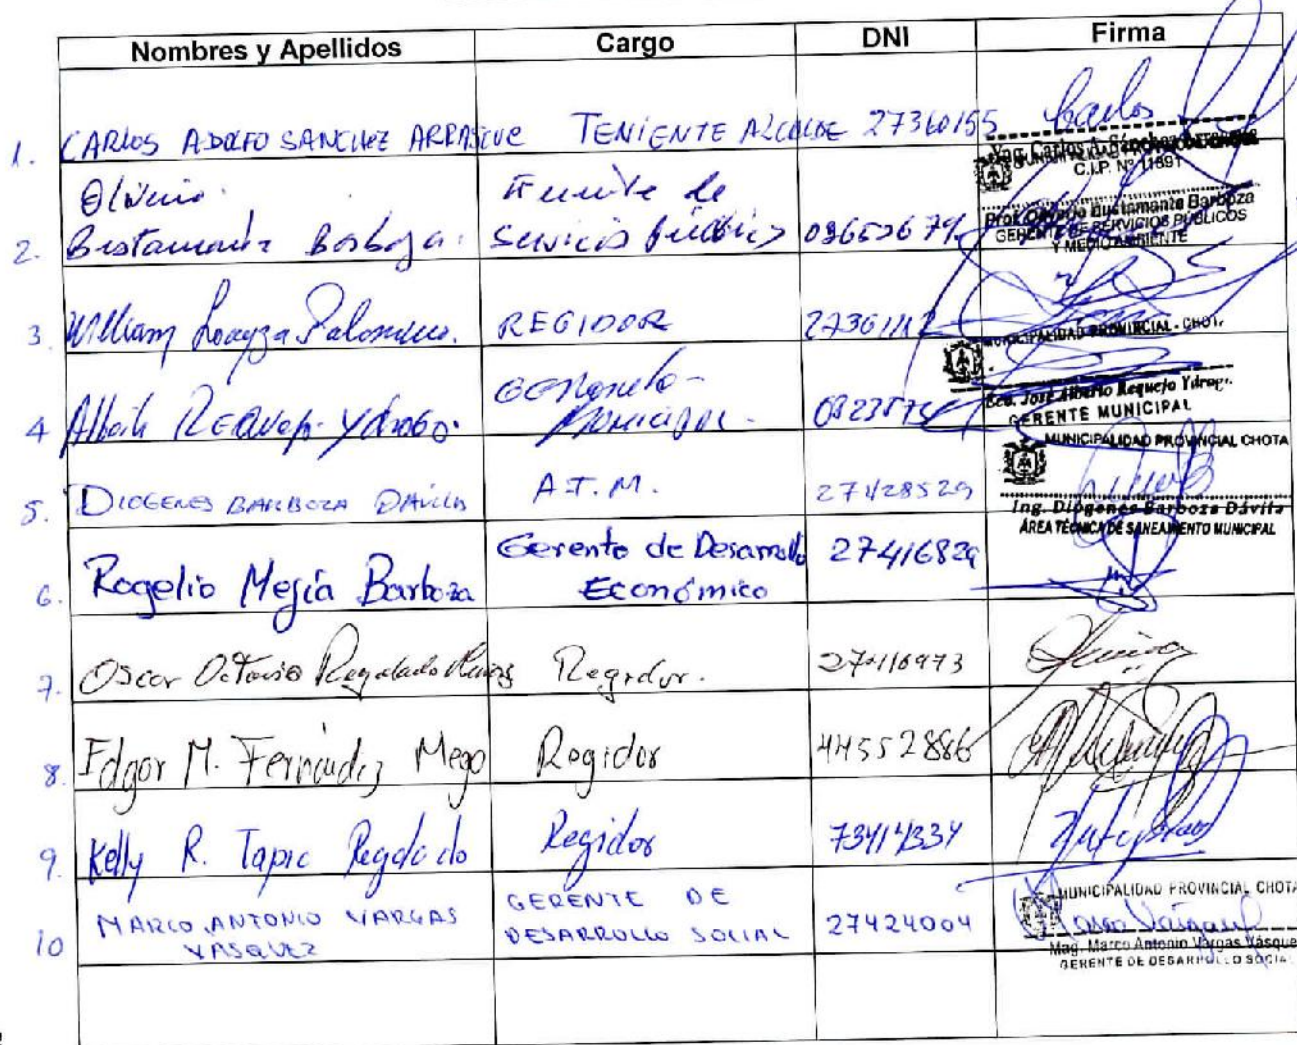 Nombres y Apellidos Cargo DNI Firma
1. CARLOS ADOLFO SANCHEZ ARRASCUE TENIENTE ALCALDE 27360155 Carlos
Ing. Carlos A. Sánchez
C.I.P. N° 11891
2. Bustamante Barboza. Servicios Públicos
Prof. Bustamante Barboza
GERENTE DE SERVICIOS PÚBLICOS
Y MEDIO AMBIENTE
3 William Loayza Palomino. REGIDOR
MUNICIPALIDAD PROVINCIAL - CHOTA
4 REQUEJO YDROGO.
Eco. José Alberto Requejo Ydrogo
GERENTE MUNICIPAL
MUNICIPALIDAD PROVINCIAL CHOTA
5. DIOGENES BARBOZA DAVILA A.T.M. 27428529
Ing. Diógenes Barboza Dávila
ÁREA TÉCNICA DE SANEAMIENTO MUNICIPAL
6. Rogelio Mejía Barboza Gerente de Desarrollo Económico 27416829
7. Oscar Octavio Regalado Regidor. 27416973
8. Edgar M. Fernández Mego Regidor 44552886
9. Kelly R. Tapia Regalado Regidor 73414334
10 MARCO ANTONIO VARGAS VASQUEZ GERENTE DE DESARROLLO SOCIAL 27424004
MUNICIPALIDAD PROVINCIAL CHOTA
Mag. Marco Antonio Vargas Vásquez
GERENTE DE DESARROLLO SOCIAL